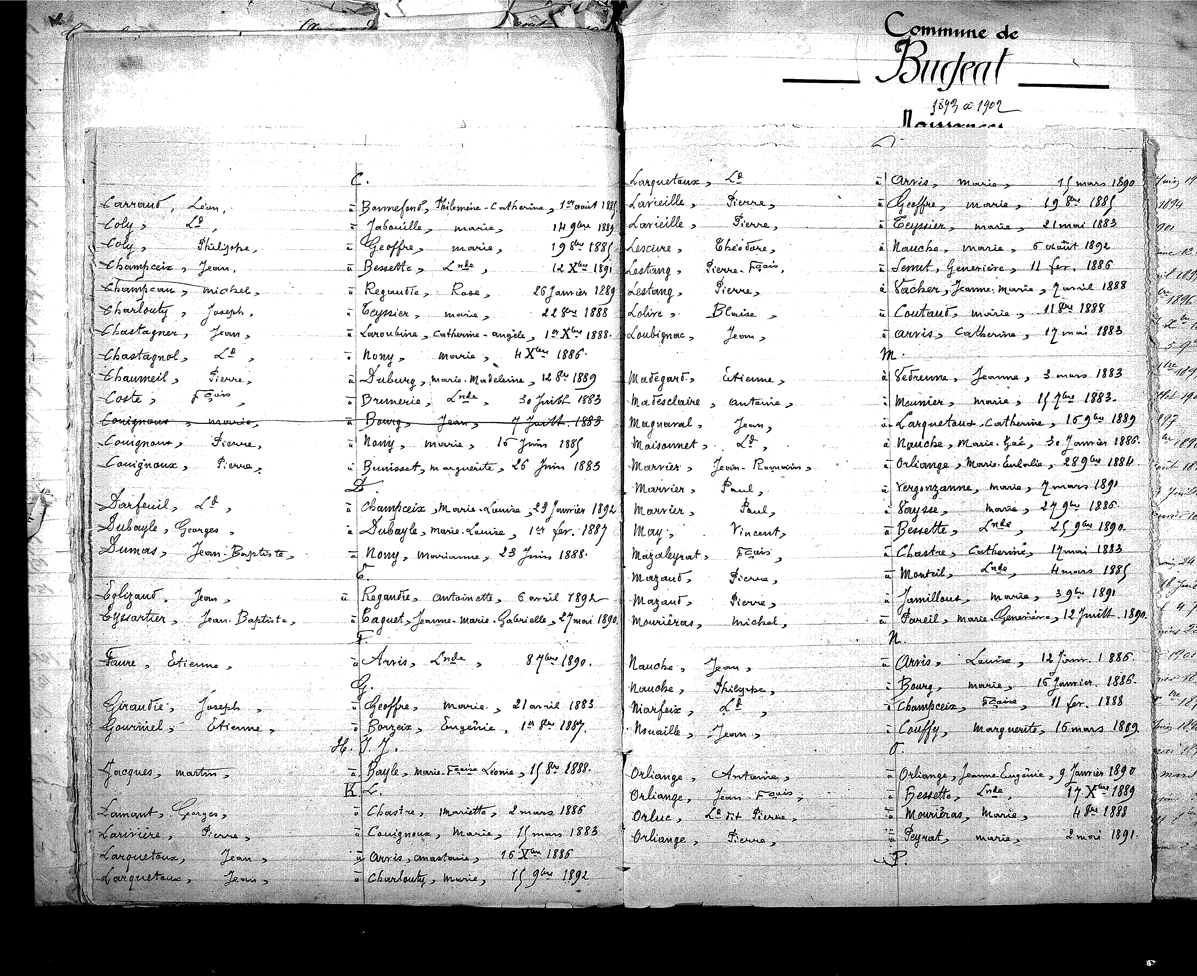 C.
Carraud, Léon, à Bonnefond, Philomène-Catherine, 1er août 1885
Coly, Ld, à Jabouille, marie, 14 9bre 1889
Coly, Philippe, à Geoffre, marie, 19 8bre 1885
Champceix, Jean, à Bessette, Lnde, 12 Xbre 1891
Champeau, michel, à Regaudie, Rose, 26 Janvier 1889
Charlouty, Joseph, à Teyssier, marie, 22 8bre 1888
Chastagner, Jean, à Laroubine, Catherine-angèle, 1er Xbre 1888.
Chastagnol, Ld, à Nony, marie, 4 Xbre 1886.
Chaumeil, Pierre, à Duburg, marie-Madeleine, 12 8bre 1889
Coste, Fçois, à Brunerie, Lnde, 30 Juillt 1883
Couignoux, marie, à Bourg, Jean, 7 Juillt. 1883
Couignoux, Pierre, à Nony, marie, 16 Juin 1885
Couignoux, Pierre, à Bunisset, marguerite, 26 Juin 1883
D.
Darfeuil, Ld, à Champceix, Marie-Louise, 23 Janvier 1892
Dubayle, Georges, à Dubayle, Marie-Louise, 1er fer. 1887
Dumas, Jean-Baptiste, à Nony, Marianne, 23 Juin 1888.
E.
Eglizaud, Jean, à Regaudie, antoinette, 6 avril 1892
Eyssartier, Jean-Baptiste, à Taguet, Jeanne-Marie-Gabrielle, 27 mai 1890.
F.
Faure, Etienne, à Arvis, Lnde, 8 7bre 1890.
G.
Giraudie, Joseph, à Geoffre, marie, 21 avril 1883
Gourinel, Etienne, à Borzeix, Eugénie, 1er 8bre 1887.
H. I. J.
Jacques, martin, à Bayle, marie-Fçoise Léonie, 15 8bre 1888.
K L.
Lamant, Georges, à Chastre, Mariette, 2 mars 1886
Larivière, Pierre, à Couignoux, Marie, 15 mars 1883
Larquetoux, Jean, à Arvis, anastasie, 16 Xbre 1886
Larquetoux, Jean, à Charlouty, Marie, 15 9bre 1892
Commune de
Bugeat
1893 à 1902
Naissances
Larquetoux, Ld, à Arvis, marie, 15 mars 1890
Lavieille, Pierre, à Geoffre, marie, 19 8bre 1885
Lavieille, Pierre, à Teyssier, marie, 21 mai 1883
Lescure, Théodore, à Nauche, marie, 6 août 1892
Lestang, Pierre-Fçois, à Serrut, Geneviève, 11 fer. 1886
Lestang, Pierre, à Vacher, Jeanne-Marie, 7 avril 1888
Lolive, Blaise, à Coutaud, marie, 11 8bre 1888
Loubignac, Jean, à arvis, Catherine, 17 mai 1883
M.
Madégard, Etienne, à Vedrenne, Jeanne, 3 mars 1883
Madesclaire, antoine, à Meunier, marie, 15 7bre 1883.
Magnaval, Jean, à Larquetoux, Catherine, 16 9bre 1889
Maisonnet, Ld, à Nauche, Marie-Gaë, 30 Janvier 1886.
Marvier, Jean-Romain, à Orliange, Marie-Eulalie, 28 9bre 1884
Marvier, Paul, à Vergonzanne, marie, 7 mars 1891
Marvier, Paul, à Vaysse, marie, 27 9bre 1886.
May, Vincent, à Bessette, Lnde, 25 9bre 1890.
Mazaleyrat, Fçois, à Chastre, Catherine, 17 mai 1883
Mazaud, Pierre, à Monteil, Lnde, 4 mars 1885
Mazaud, Pierre, à Jamilloux, marie, 3 9bre 1891
Mouriéras, michel, à Pareil, marie-Geneviève, 12 Juillt. 1890.
N.
Nauche, Jean, à Arvis, Louise, 12 Janv. 1886.
Nauche, Philippe, à Bourg, marie, 16 Janvier. 1886.
Niarfeix, Ld, à Champceix, Fçoise, 11 fer. 1888
Nouaille, Jean, à Couffy, marguerite, 16 mars 1889
O.
Orliange, Antoine, à Orliange, Jeanne-Eugénie, 9 Janvier 1890
Orliange, Jean-Fçois, à Bessette, Lnde, 17 Xbre 1889
Orluc, Ld dit Pierre, à Mouriéras, Marie, 4 8bre 1888
Orliange, Pierre, à Peyrat, marie, 2 mai 1891.
P.